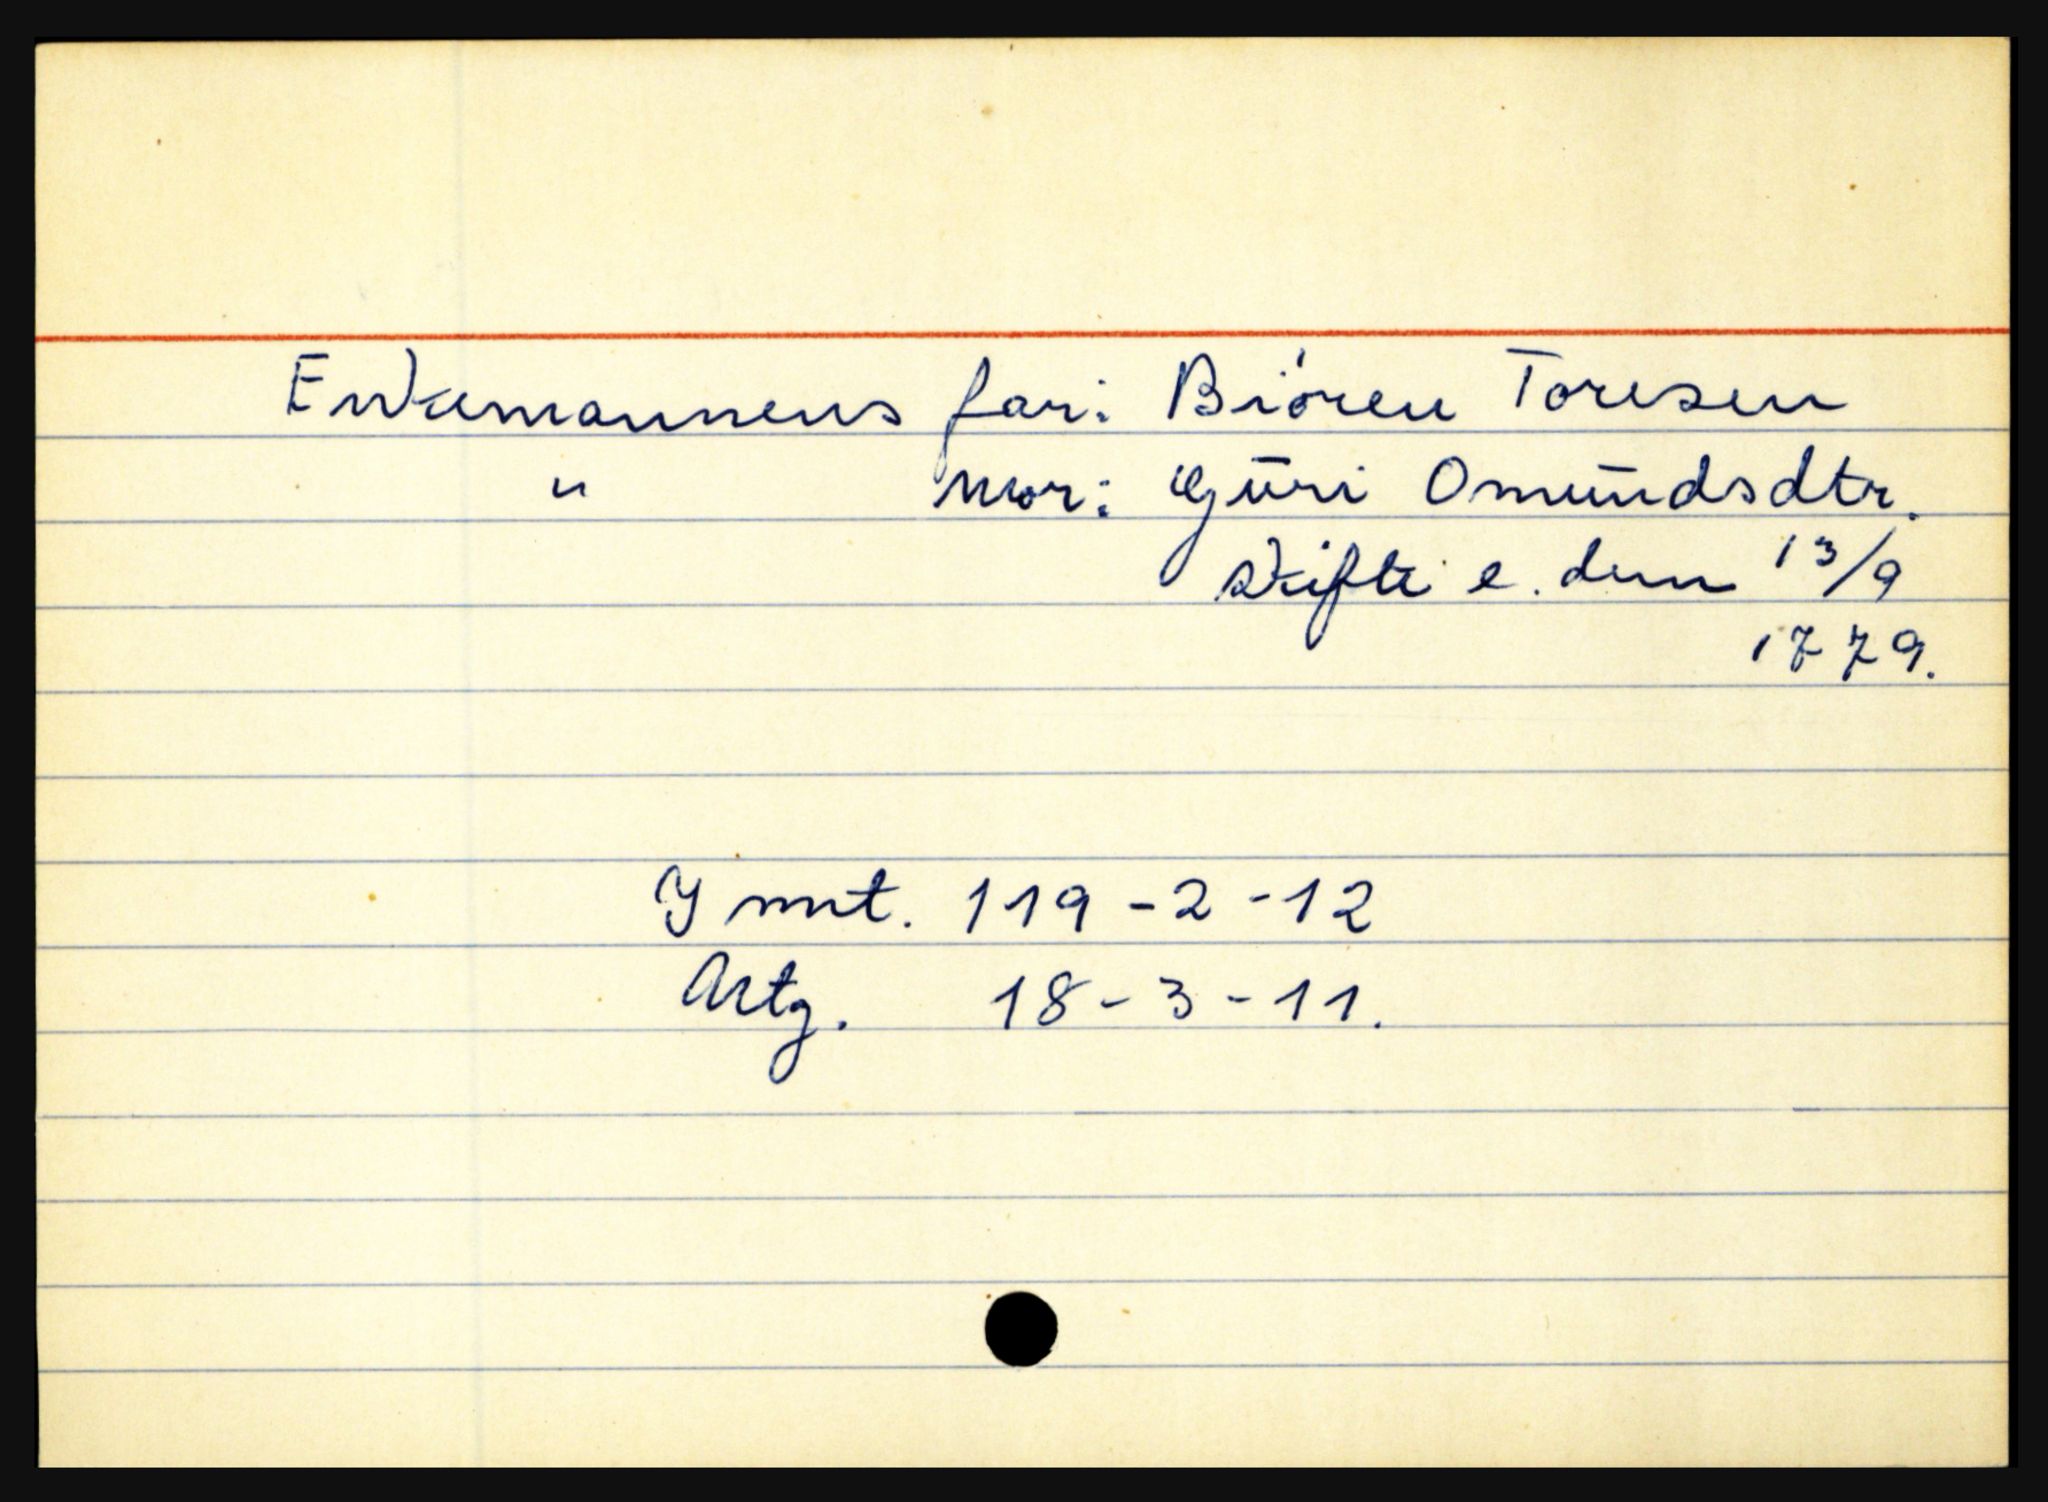 Enkemannens far: Biören Toresen
" mor: Gūri Omūndsdtr.
skifte e. dem 13/9
1779.
I mnt. 119-2-12
Artg. 18-3-11.